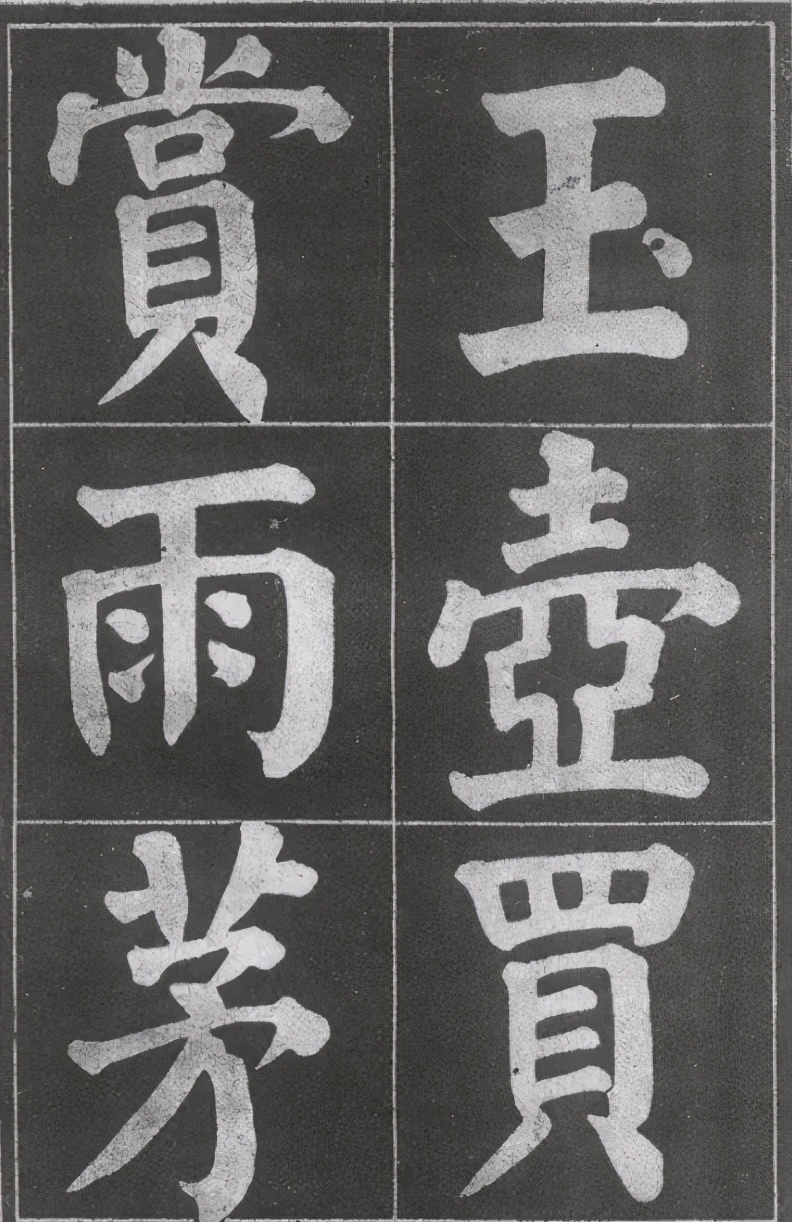 玉壺買
賞雨茅